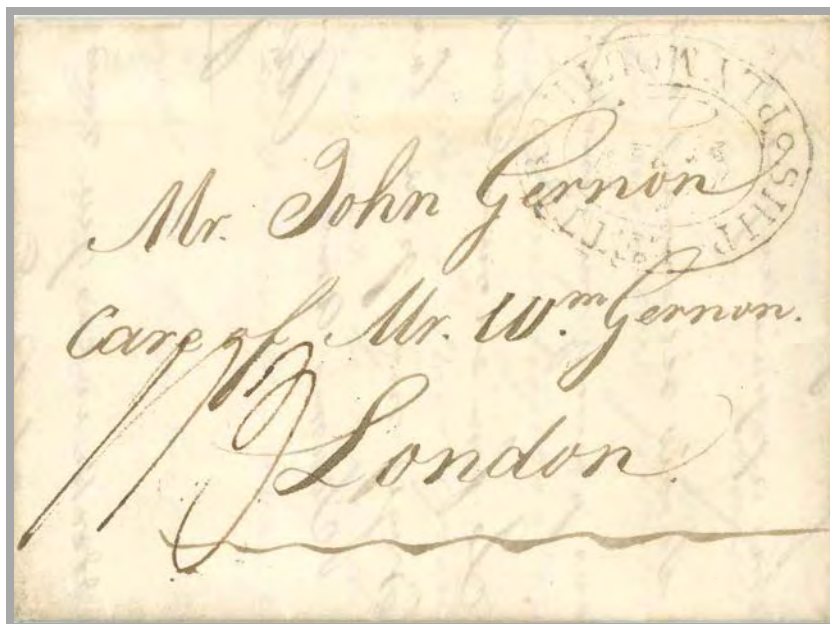 PLYMOUTH
SHIP LETTER
Mr. John Gernon
Care of Mr. Wm. Gernon.
1/3
London.